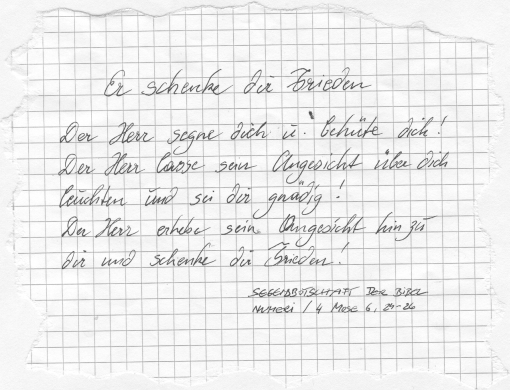 Er schenke dir Frieden
Der Herr segne dich u. behüte dich!
Der Herr lasse sein Angesicht über dich
leuchten und sei dir gnädig!
Der Herr erhebe sein Angesicht hin zu
dir und schenke dir Frieden!
SEGENSBOTSCHAFT DER BIBEL
NUMERI / 4 MOSE 6, 24-26